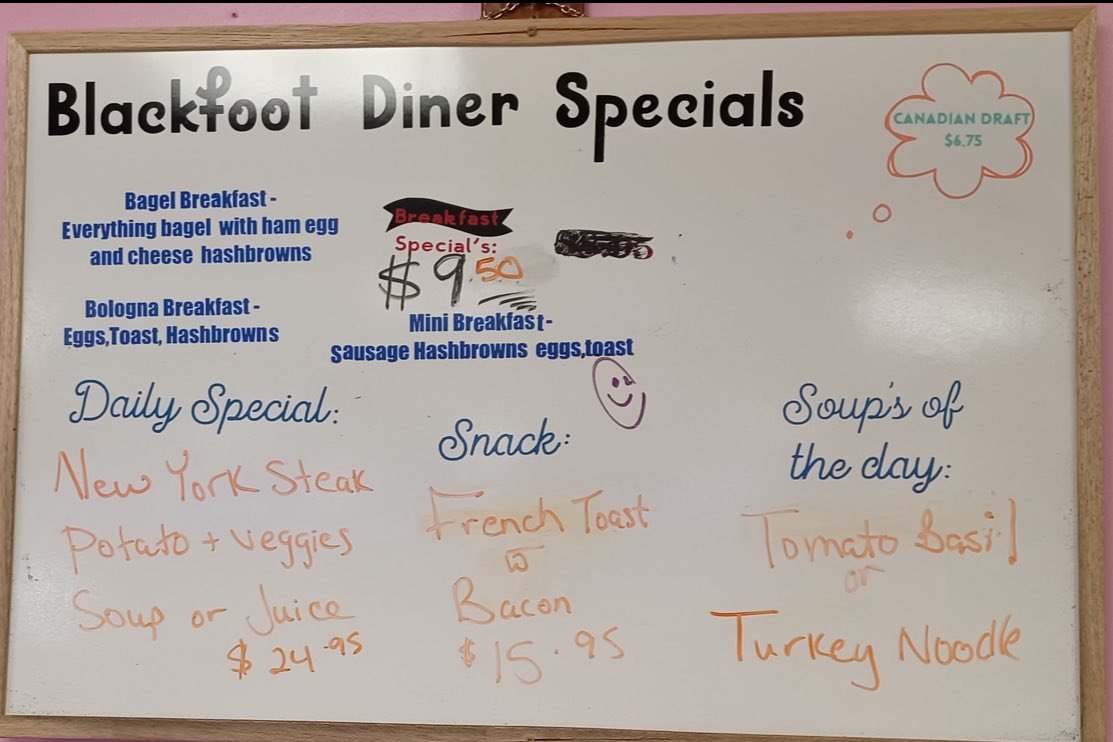 Blackfoot Diner Specials
CANADIAN DRAFT
$6.75
Bagel Breakfast -
Everything bagel with ham egg
and cheese hashbrowns
Bologna Breakfast -
Eggs,Toast, Hashbrowns
Breakfast
Special's:
$9.50
Mini Breakfast-
Sausage Hashbrowns eggs,toast
Daily Special:
New York Steak
Potato + veggies
Soup or Juice
$24.95
Snack:
French Toast
w
Bacon
$15.95
Soup's of
the day:
Tomato Basil
or
Turkey Noodle